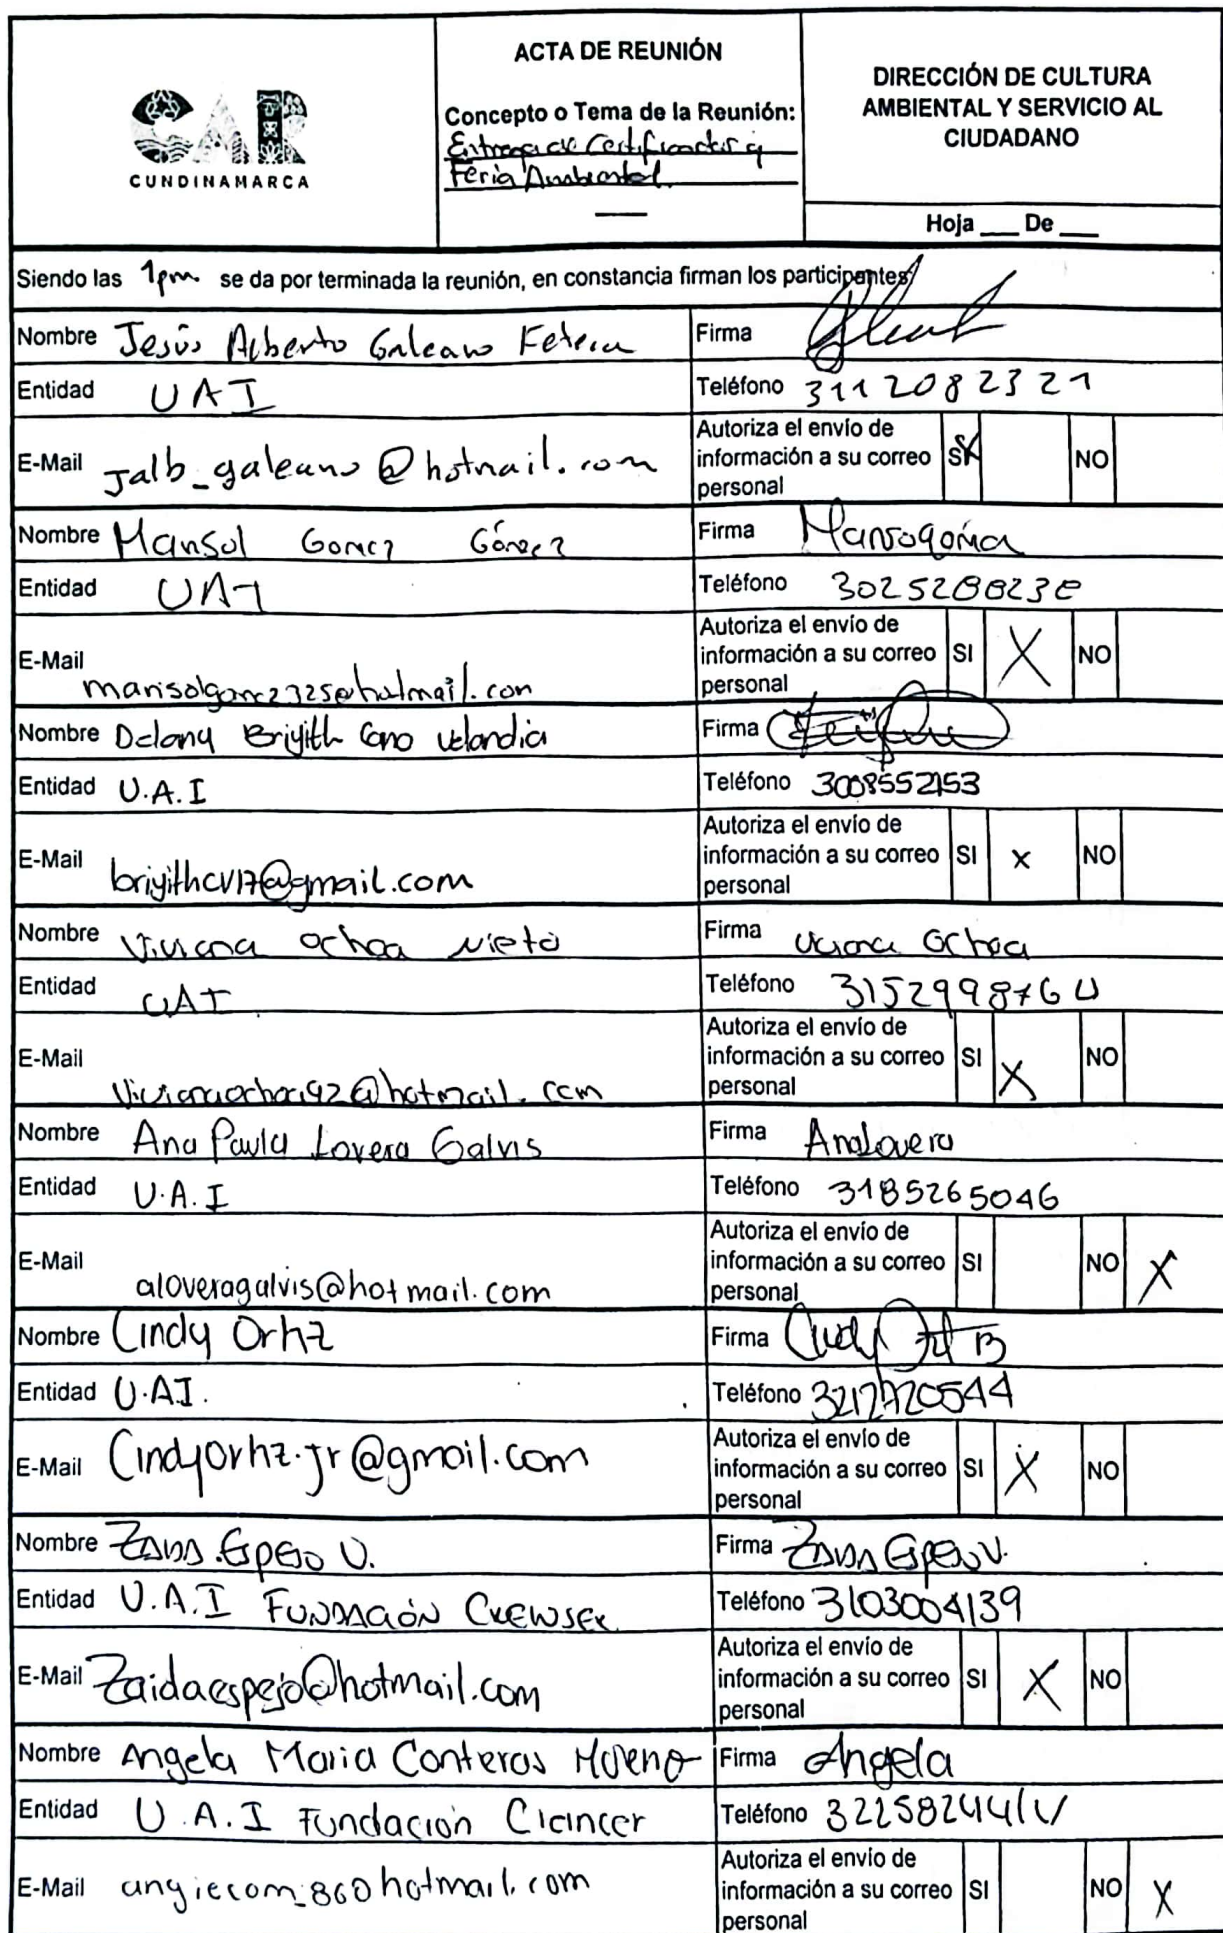 CAR
CUNDINAMARCA
ACTA DE REUNIÓN
Concepto o Tema de la Reunión:
Entrega de Certificados y
Feria Ambiental.
DIRECCIÓN DE CULTURA
AMBIENTAL Y SERVICIO AL
CIUDADANO
Hoja ___ De ___
Siendo las 1pm. se da por terminada la reunión, en constancia firman los participantes
Nombre Jesús Alberto Galeano
Firma
Entidad UAI
Teléfono 3112082321
E-Mail Jalb_galeano@hotmail.com
Autoriza el envío de
información a su correo SI X NO
personal
Nombre Marisol Gomez Gómez
Firma
Entidad UAI
Teléfono
E-Mail
Autoriza el envío de
información a su correo SI X NO
personal
Nombre Delany Briyith Cano Velandia
Firma
Entidad U.A.I
Teléfono 3008552153
E-Mail briyithcv17@gmail.com
Autoriza el envío de
información a su correo SI x NO
personal
Nombre Viviana Ochoa Nieto
Firma Viviana Ochoa
Entidad UAI
Teléfono
E-Mail Vivianaochoa92@hotmail.com
Autoriza el envío de
información a su correo SI X NO
personal
Nombre Ana Paula Lovera Galvis
Firma AnaLovera
Entidad U.A.I
Teléfono 3185265046
E-Mail aloveragalvis@hotmail.com
Autoriza el envío de
información a su correo SI NO X
personal
Nombre Cindy Ortiz
Firma
Entidad U.AI.
Teléfono
E-Mail Cindyortiz.jr@gmail.com
Autoriza el envío de
información a su correo SI X NO
personal
Nombre Zaida Espejo V.
Firma Zaida Espejo V.
Entidad U.A.I Fundación
Teléfono 3103004139
E-Mail Zaidaespejo@hotmail.com
Autoriza el envío de
información a su correo SI X NO
personal
Nombre Angela Maria Conteras Moreno
Firma Angela
Entidad U.A.I Fundación
Teléfono
E-Mail
Autoriza el envío de
información a su correo SI NO X
personal